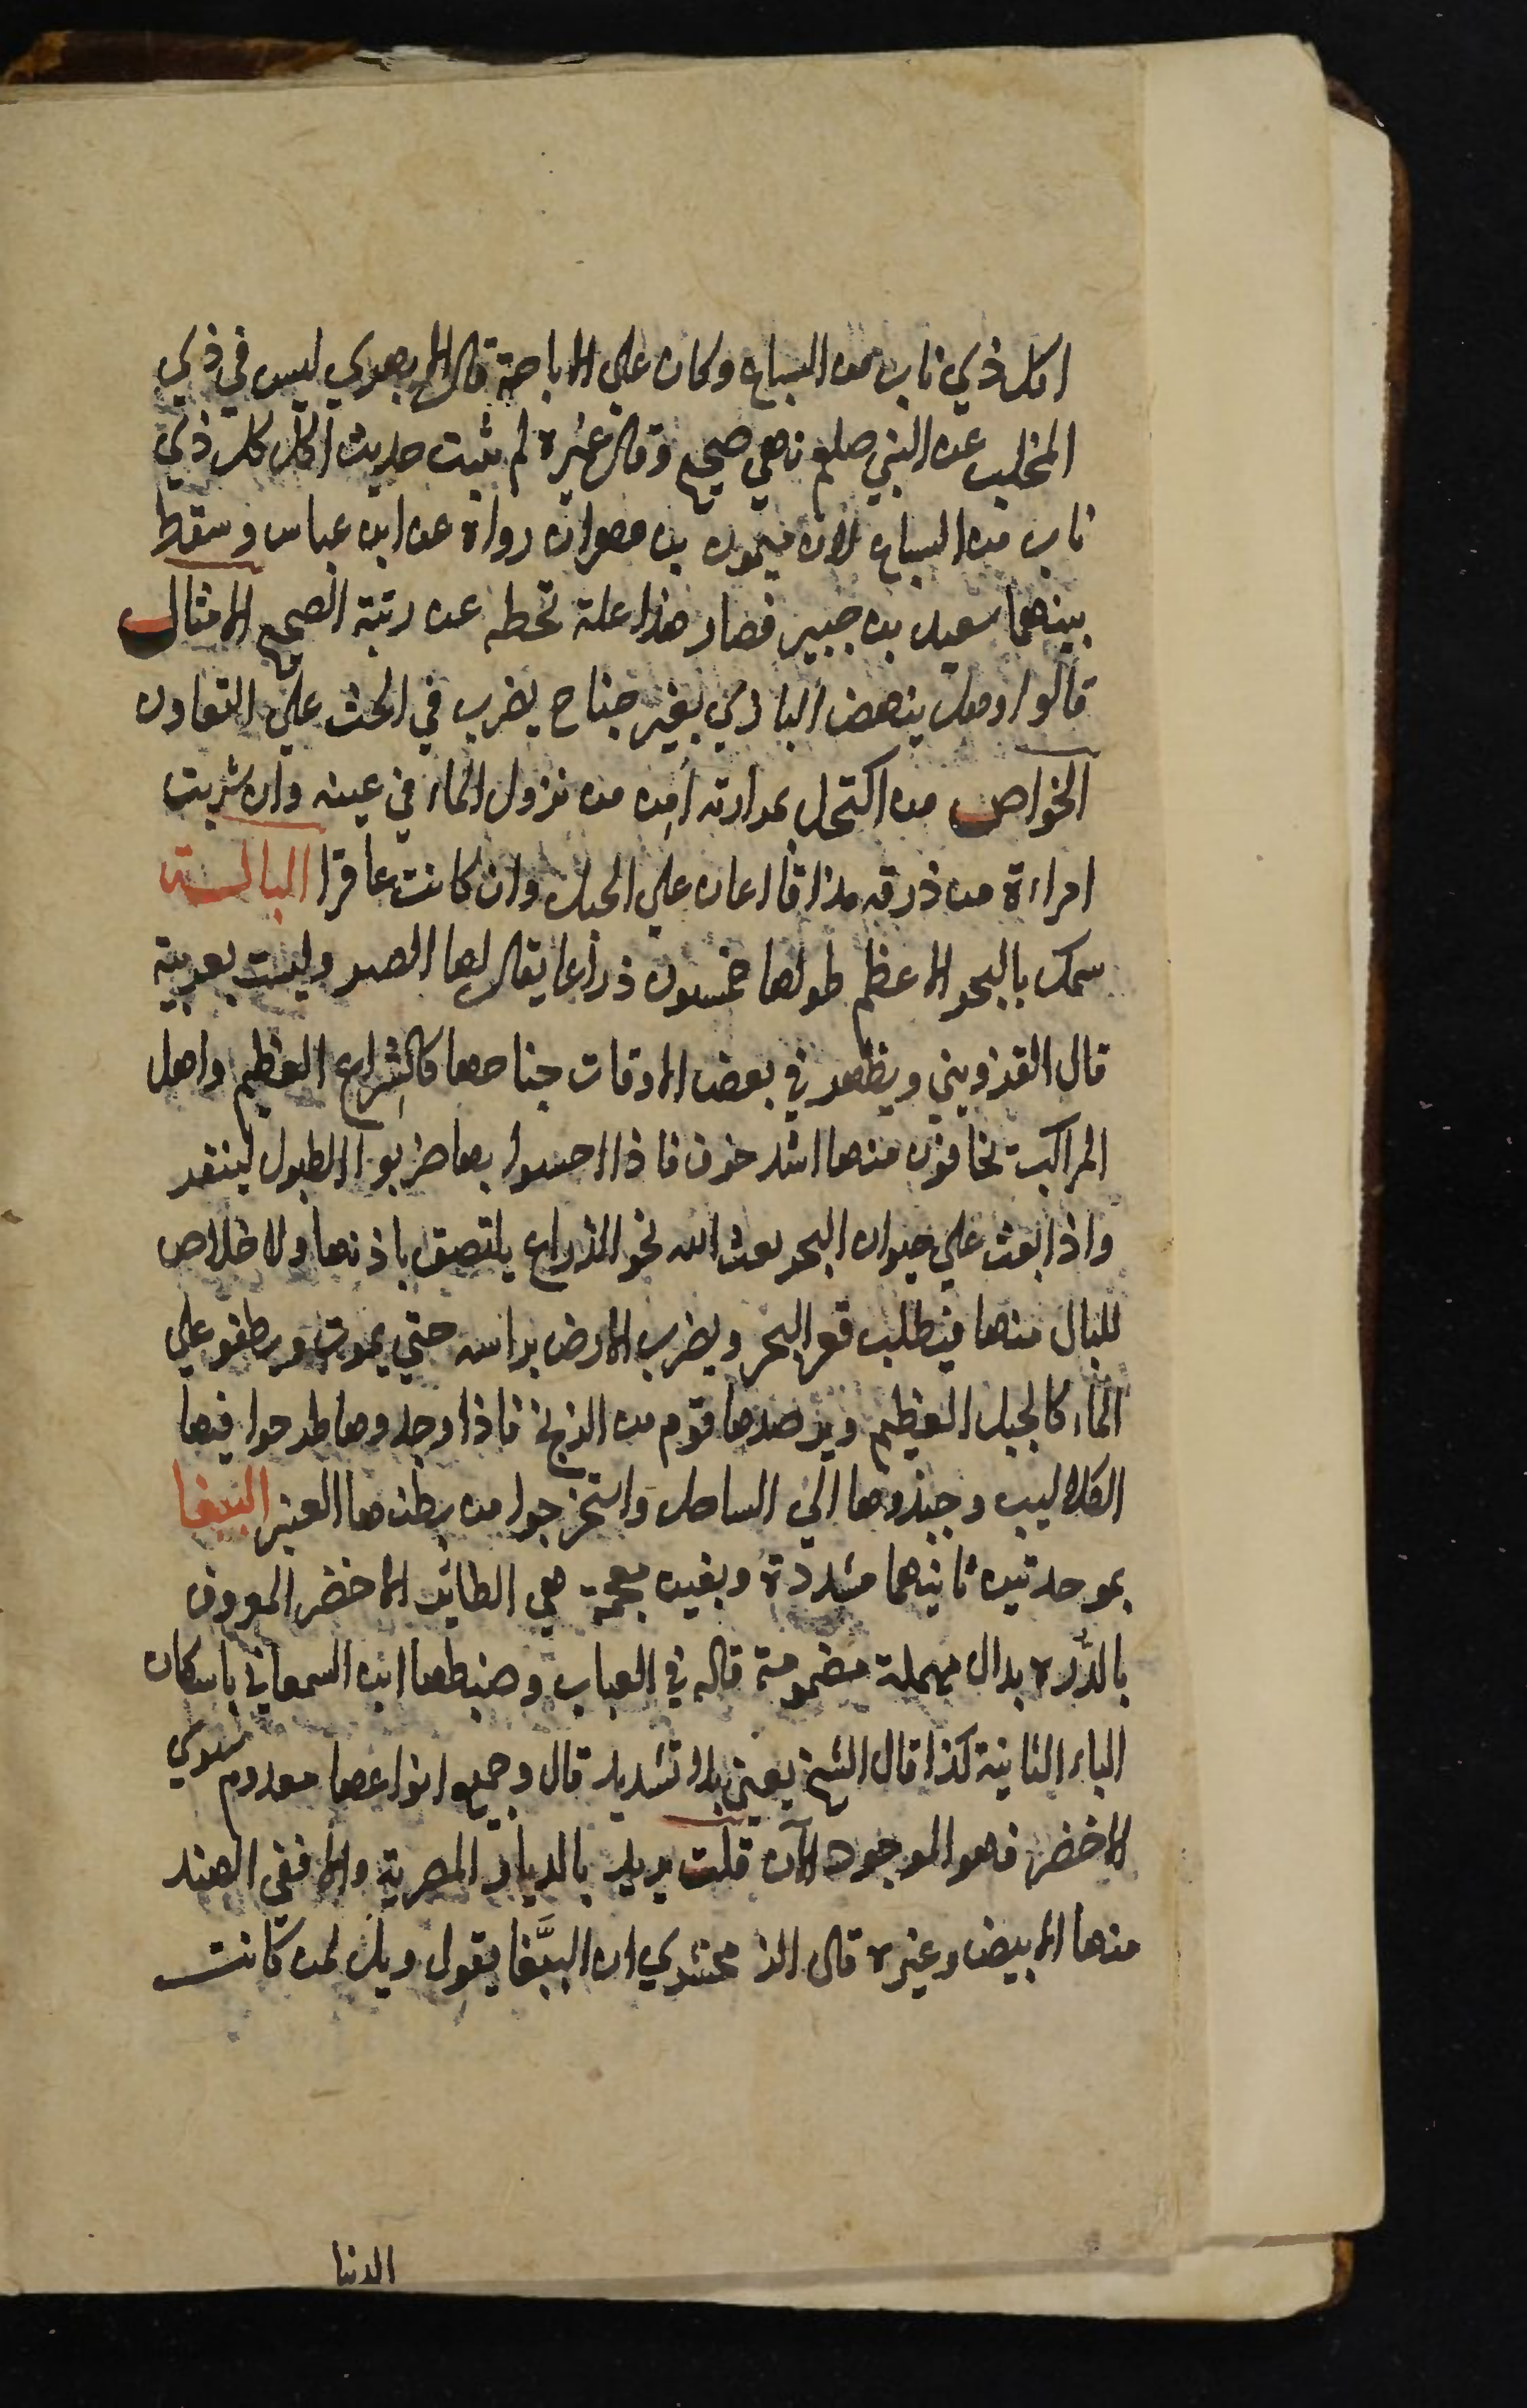 اكل ذي ناب من السباع وكان علي الاباحة قال الابهري ليس في ذي
المخلب عن النبي صلعم نهي صحيح وقال غيره لم يثبت حديث اكل كل ذي
ناب من السباع لان ميمون بن مهران رواه عن ابن عباس وسقط
بينهما سعيد بن جبير فصار هذا علة تحطه عن رتبة الصحيح الامثال
قالوا وهل ينهض البازي بغير جناح يضرب في الحث علي التعاون
الخواص من اكتحل بمرارته امن من نزول الماء في عينه وان شربت
امراءة من ذرقه مذافا اعان علي الحبل وان كانت عاقرا البالـة
سمك بالبحر الاعظم طولها خمسون ذراعا يقال لها العنبر وليست بعربية
قال القزويني ويظهر في بعض الاوقات جناحها كالشراع العظيم واهل
المراكب يخافون منها اشد خوف فاذا احسوا بها ضربوا الطبول لينفر
واذا بعث علي حيوان البحر بعث الله نحو الذراع يلتصق باذنها ولا خلاص
للبال منها فيطلب قعر البحر ويضرب الارض براسه حتي يموت ويطفو علي
الماء كالجبل العظيم ويرصدها قوم من الزنج فاذا وجدوها طرحوا فيها
الكلاليب وجبذوها الي الساحل واستخرجوا من بطنها العنبر الببغا
بموحدتين ثانيهما مشددة وبغين معجمة هي الطائر الاخضر المعروف
بالدره بدال مهملة مضمومة قاله في العباب وضبطها ابن السمعاني باسكان
الباء الثانية كذا قال الشيخ يعني بلا تشديد قال وجميع انواعها معدوم سوي
الاخضر فهو الموجود الآن قلت يريد بالديار المصرية والا ففي الهند
منها الابيض وغيره قال الزمخشري ان الببَّغا يقول ويل لمن كانت
الدنيا